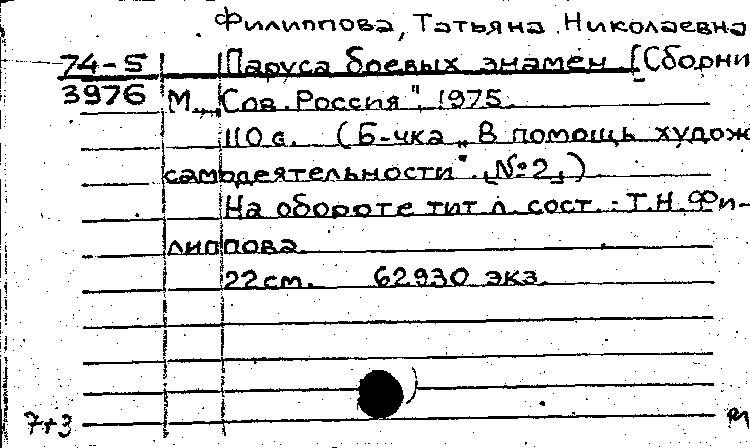 Филиппова, Татьяна Николаевна
74-5 Паруса боевых знамен. [Сборни
3976 М., „Сов. Россия", 1975.
110 с. (Б-чка „В помощь худож
самодеятельности". №2.)
На обороте тит л. сост.: Т.Н. Фи-
липпова.
22 см. 62930 экз.
7+3